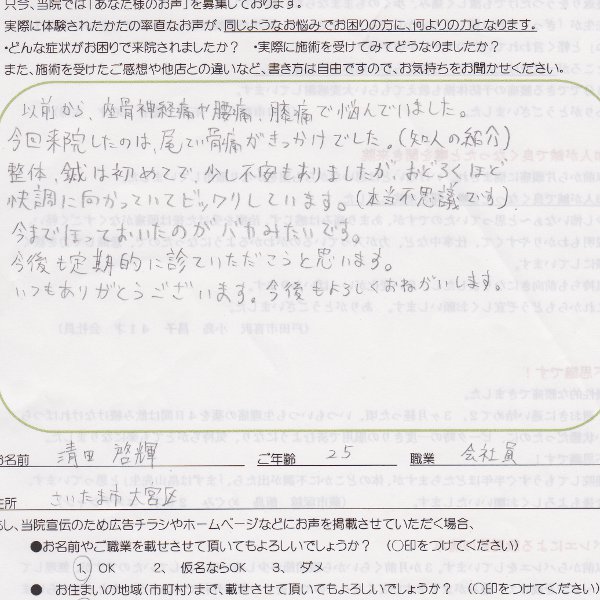 只今、当院では「あなた様のお声」を募集しております。
実際に体験されたかたの率直なお声が、同じようなお悩みでお困りの方に、何よりの力となります。
・どんな症状がお困りで来院されましたか？ ・実際に施術を受けてみてどうなりましたか？
また、施術を受けたご感想や他店との違いなど、書き方は自由ですので、お気持ちをお聞かせください。
以前から、座骨神経痛や腰痛、膝痛で悩んでいました。
今回来院したのは、尾てい骨痛がきっかけでした。（知人の紹介）
整体、鍼は初めてで、少し不安もありましたが、おどろくほど
快調に向かっていてビックリしています。（本当不思議です）
今まで圧っておいたのがバカみたいです。
今後も定期的に診ていただこうと思います。
いつもありがとうございます。今後もよろしくおねがいします。
お名前 清田 啓輝 ご年齢 25 職業 会社員
住所 さいたま市大宮区
もし、当院宣伝のため広告チラシやホームページなどにお声を掲載させていただく場合、
●お名前やご職業を載せさせて頂いてもよろしいでしょうか？ （○印をつけてください）
1. OK 2. 仮名ならOK 3. ダメ
● お住まいの地域（市町村）まで、載せさせて頂いてもよろしいでしょうか？ （○印をつけてください）